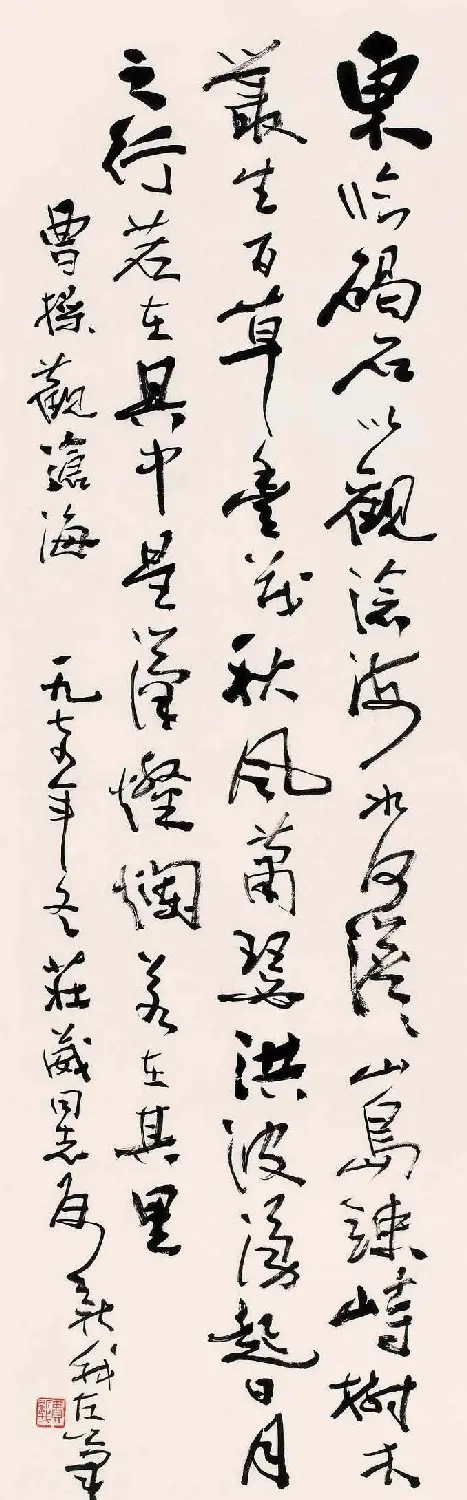 東臨碣石以觀滄海水何澹〻山島竦峙樹木
叢生百草豐茂秋風蕭瑟洪波湧起日月
之行若在其中星漢燦爛若在其里
曹操觀滄海 一九七五年冬 莊葳同志屬 新我左筆